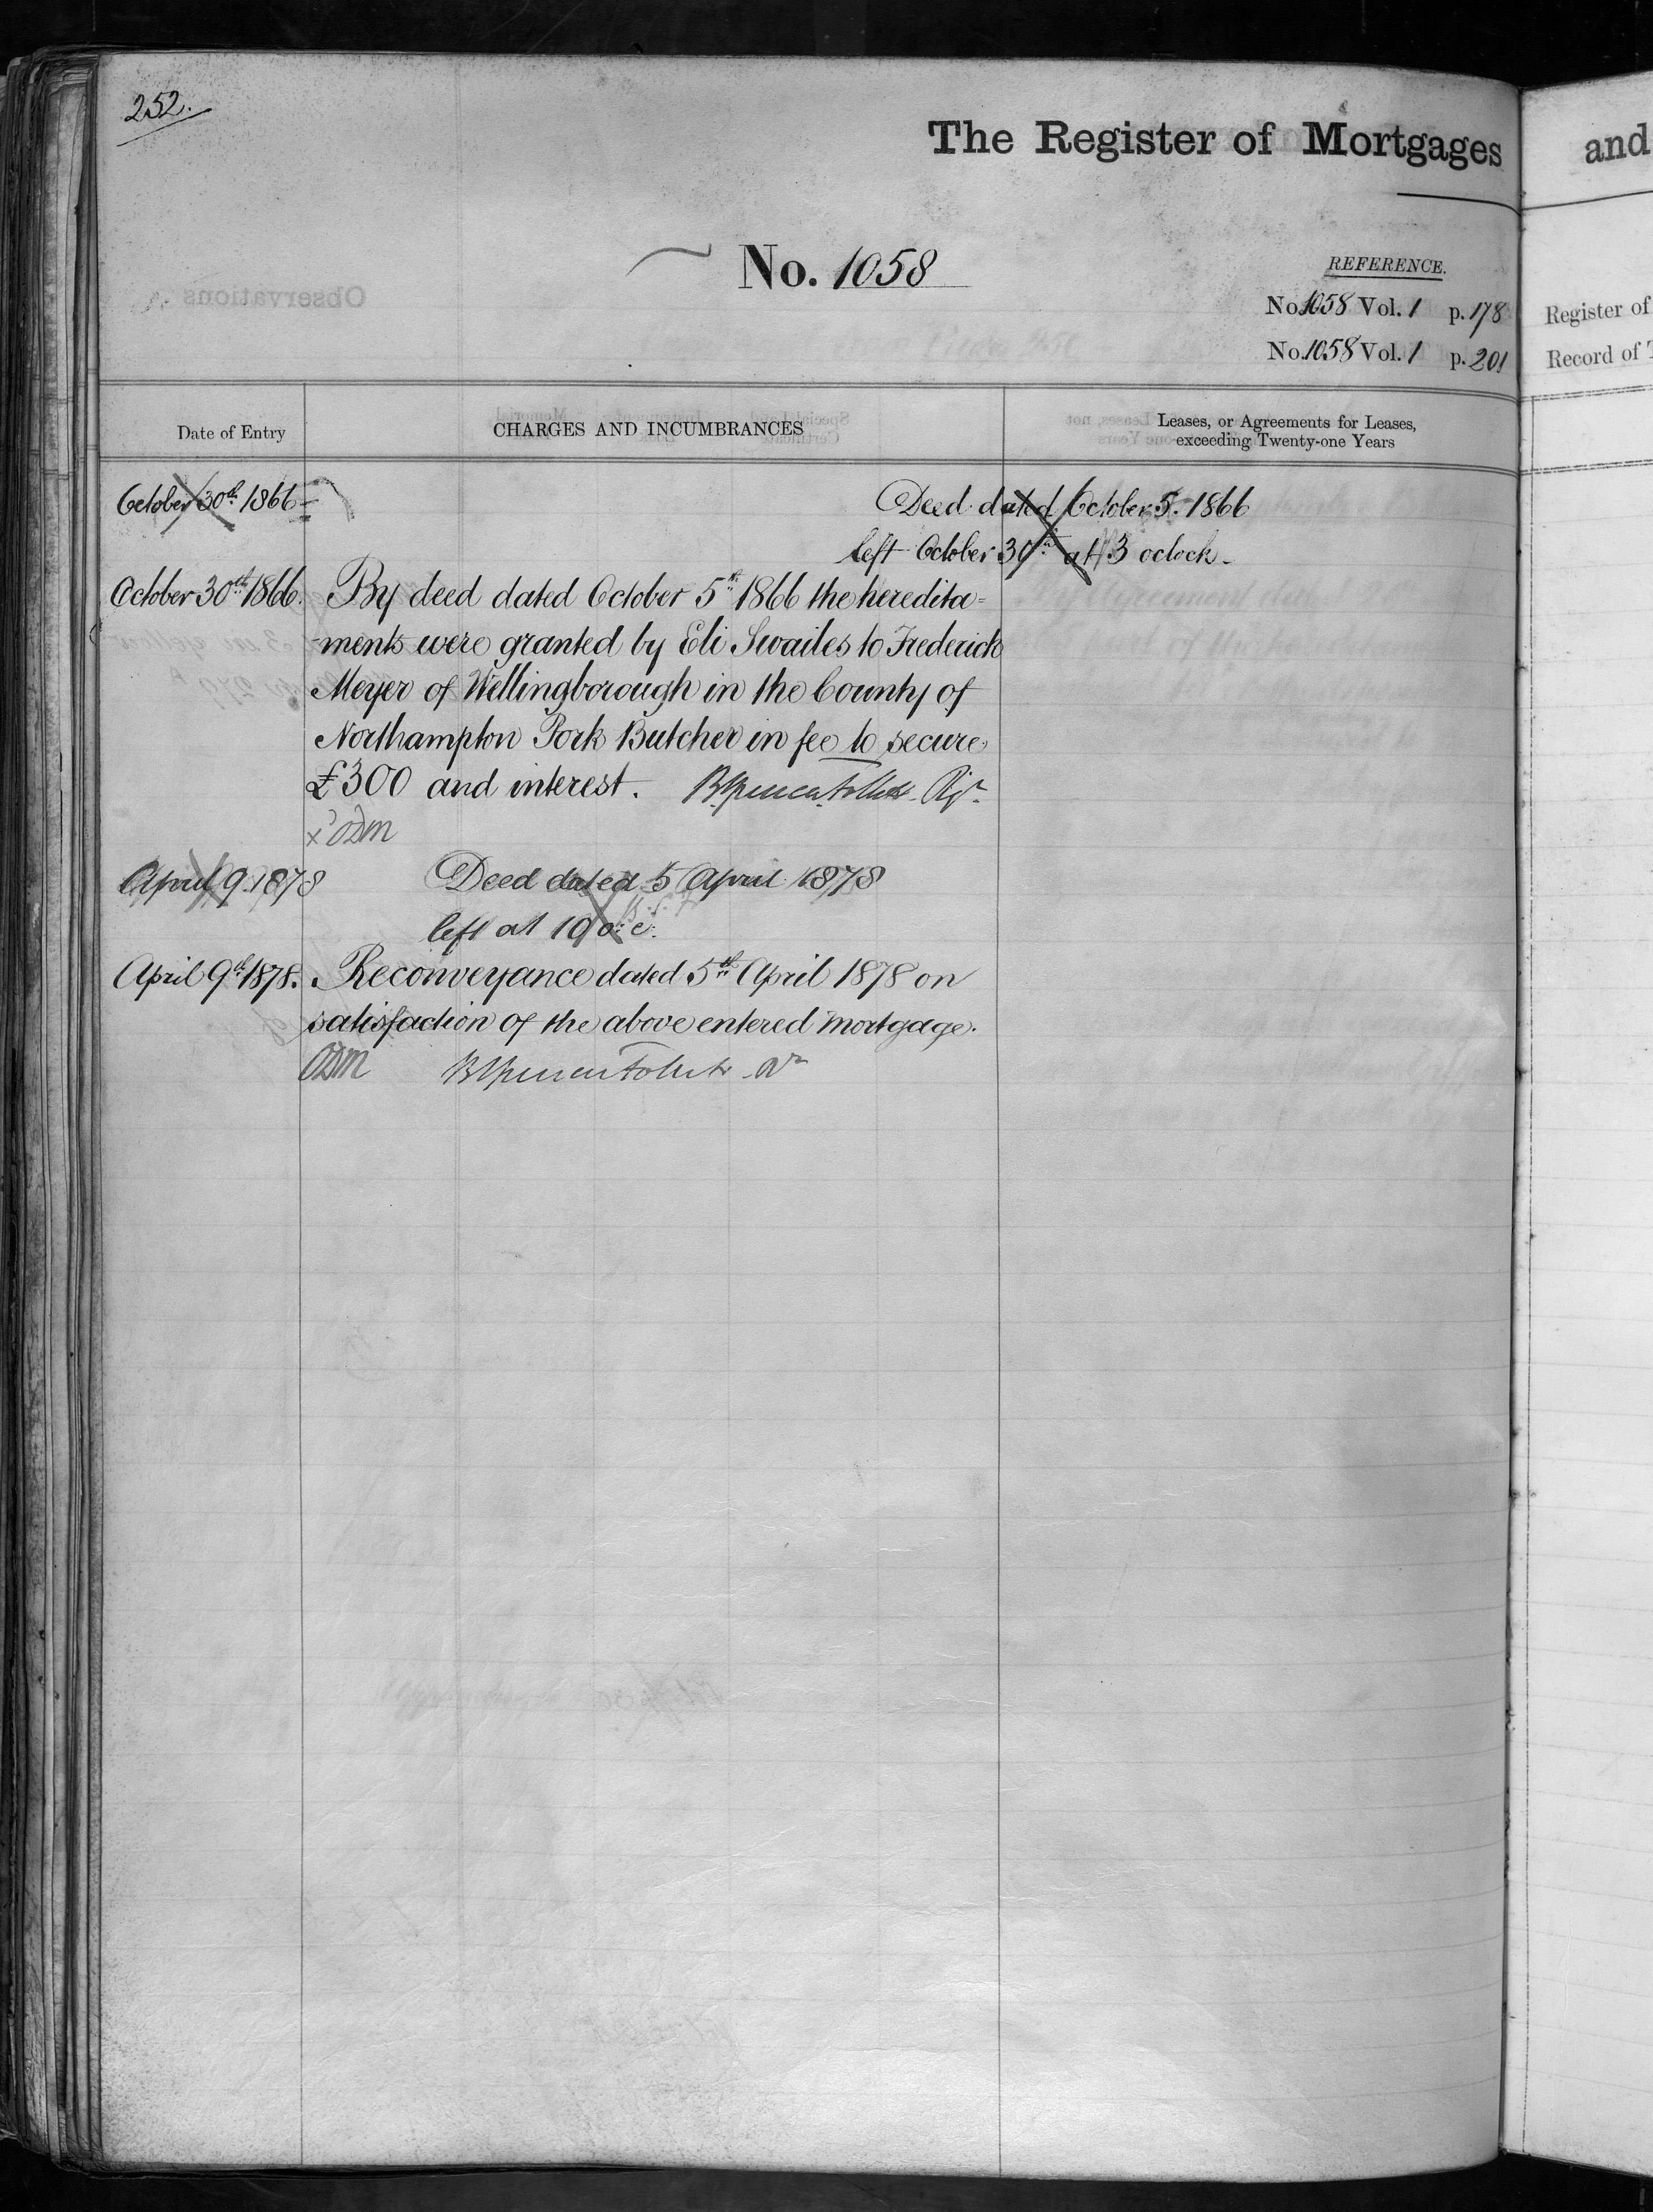 252.
The Register of Mortgages
and
No. 1058
REFERENCE.
No. 1058 Vol. 1 p. 178
Register of
No. 1058 Vol. 1 p. 201
Record of
Date of Entry
CHARGES AND INCUMBRANCES
Leases, or Agreements for Leases,
exceeding Twenty-one Years
October 30th 1866
Deed dated October 5. 1866
left October 30th at 3 oclock
October 30th 1866. By deed dated October 5th 1866 the heredita=
=ments were granted by Eli Swailes to Frederick
Meyer of Wellingborough in the County of
Northampton Pork Butcher in fee to secure
£300 and interest.
x ODM
April 9. 1878 Deed dated 5 April 1878
left at 10 o.c.
April 9th 1878. Reconveyance dated 5th April 1878 on
satisfaction of the above entered mortgage.
ODM